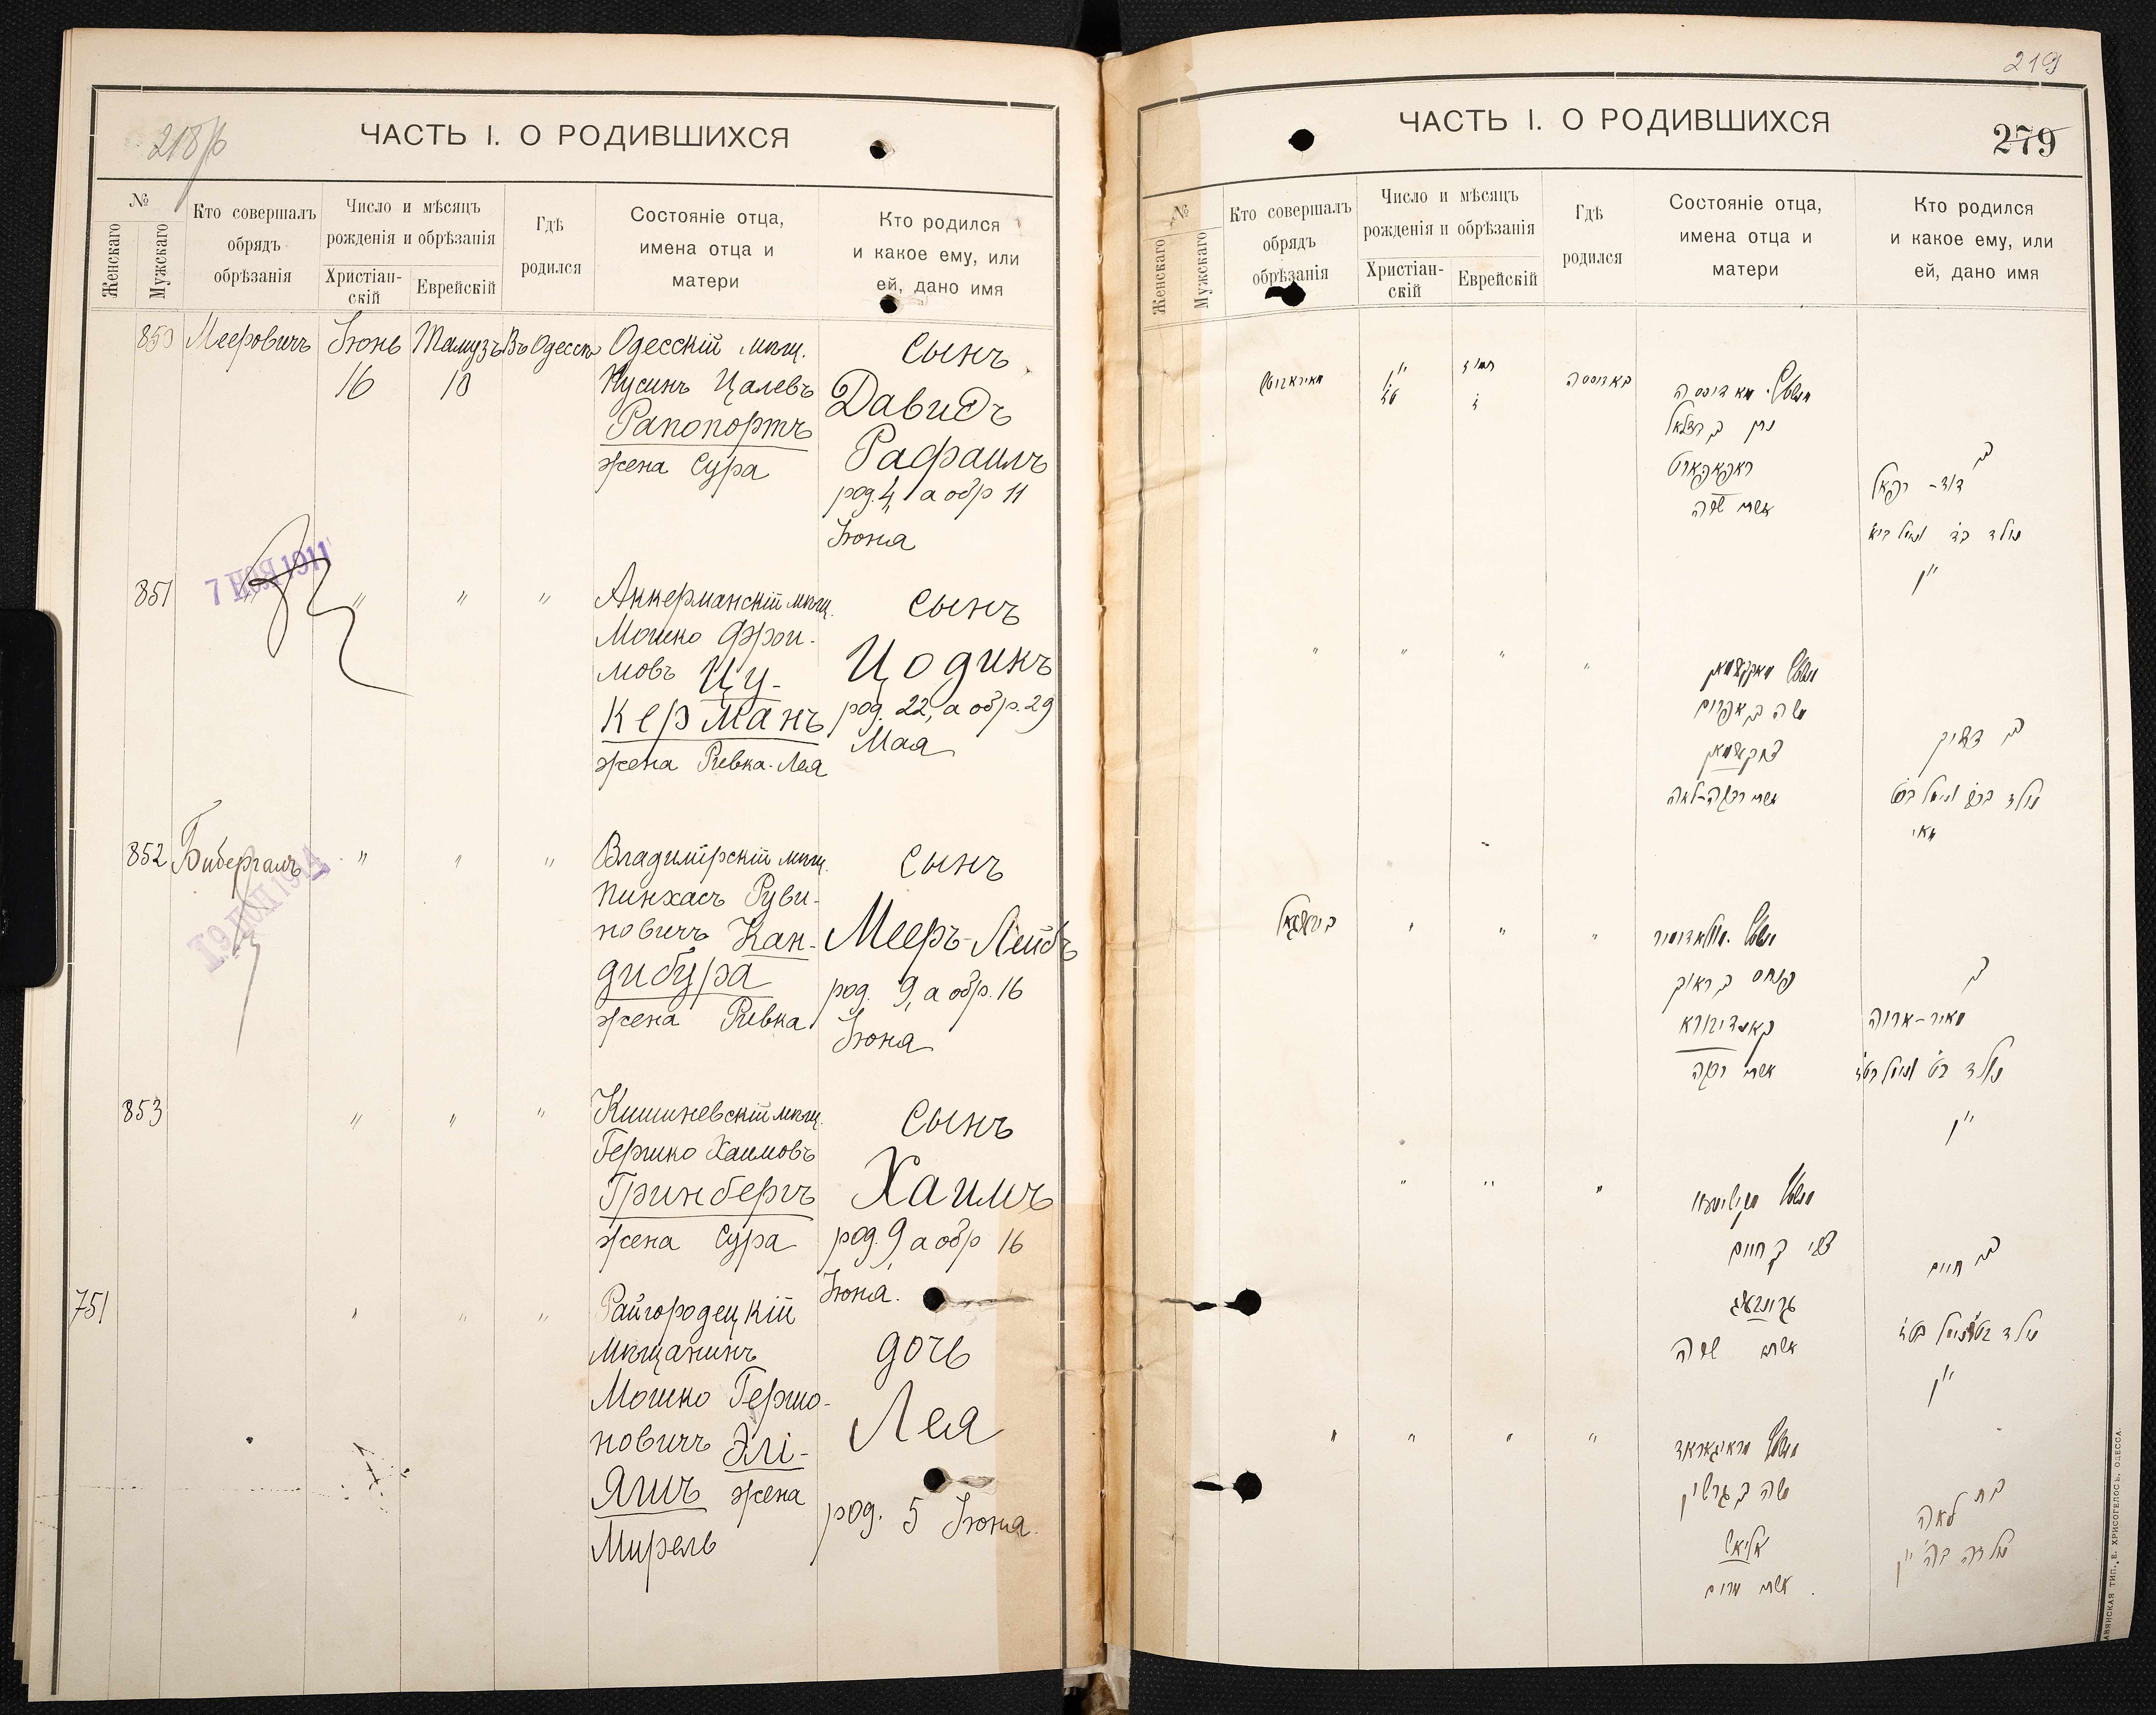 218 об
ЧАСТЬ I. О РОДИВШИХСЯ
№
Женскаго
Мужскаго
Кто совершалъ
обрядъ
обрѣзанія
Число и мѣсяцъ
рожденія и обрѣзанія
Христіан-
скій
Еврейскій
Гдѣ
родился
Состояніе отца,
имена отца и
матери
Кто родился
и какое ему, или
ей, дано имя
850
Мееровичъ
Іюнь
16
Тамузъ
Въ Одессѣ
Одесскій мѣщ.
Нусинъ Цалевъ
Рапопортъ
жена Сура
Сынъ
Давидъ
Рафаилъ
род. 4, а обр 11
Іюня
851
7 НОЯ 1911
"
"
"
Аккерманскій мѣщ.
Мошко Фрои-
мовъ Цу-
керманъ
жена Ривка-Лея
Сынъ
Цодикъ
род. 22, а обр. 29
Мая
852
Бибергалъ
"
"
"
Владимірскій мѣщ.
Пинхасъ Руви-
новичъ Кан-
дибура
жена Ривка
Сынъ
Мееръ-Лейбъ
род. 9, а обр. 16
Іюня
853
"
"
"
Кишиневскій мѣщ.
Гершко Хаимовъ
Гринбергъ
жена Сура
Сынъ
Хаимъ
род. 9, а обр 16
Іюня.
751
"
"
"
Райгородецкій
мѣщанинъ
Мошко Гершо-
новичъ Элі-
яшъ жена
Мирель
дочь
Лея
род. 5 Іюня.
219
ЧАСТЬ I. О РОДИВШИХСЯ
279
№
Женскаго
Мужскаго
Кто совершалъ
обрядъ
обрѣзанія
Число и мѣсяцъ
рожденія и обрѣзанія
Христіан-
скій
Еврейскій
Гдѣ
родился
Состояніе отца,
имена отца и
матери
Кто родился
и какое ему, или
ей, дано имя
באדעססה
נתן ב בצלאל
ראפאפארט
אשתו שרה
בן
דוד-רפאל
יון
"
"
"
"
משה ב אפרים
צוקערמאן
אשתו רבקה-לאה
בן צדיק
מאי
ביבערגאל
"
"
"
פנחס ב ראובן
קאנדיבורא
אשתו רבקה
בן
מאיר-אריה
יון
"
"
"
צבי ב חיים
גרינבערג
אשתו שרה
בן חיים
יון
"
"
"
"
משה ב גרשון
אליאש
אשתו מרים
בת לאה
נולדה בה' יון